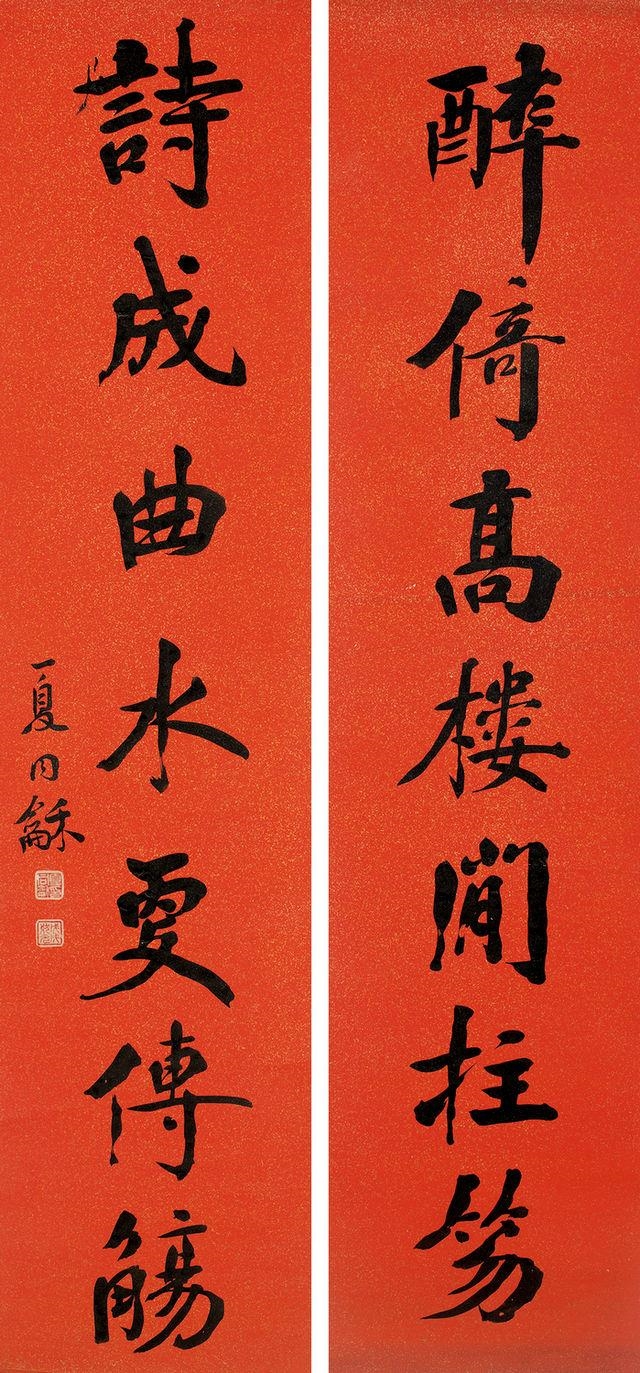 醉倚高楼閒拄笏
詩成曲水更傳觴
夏同龢